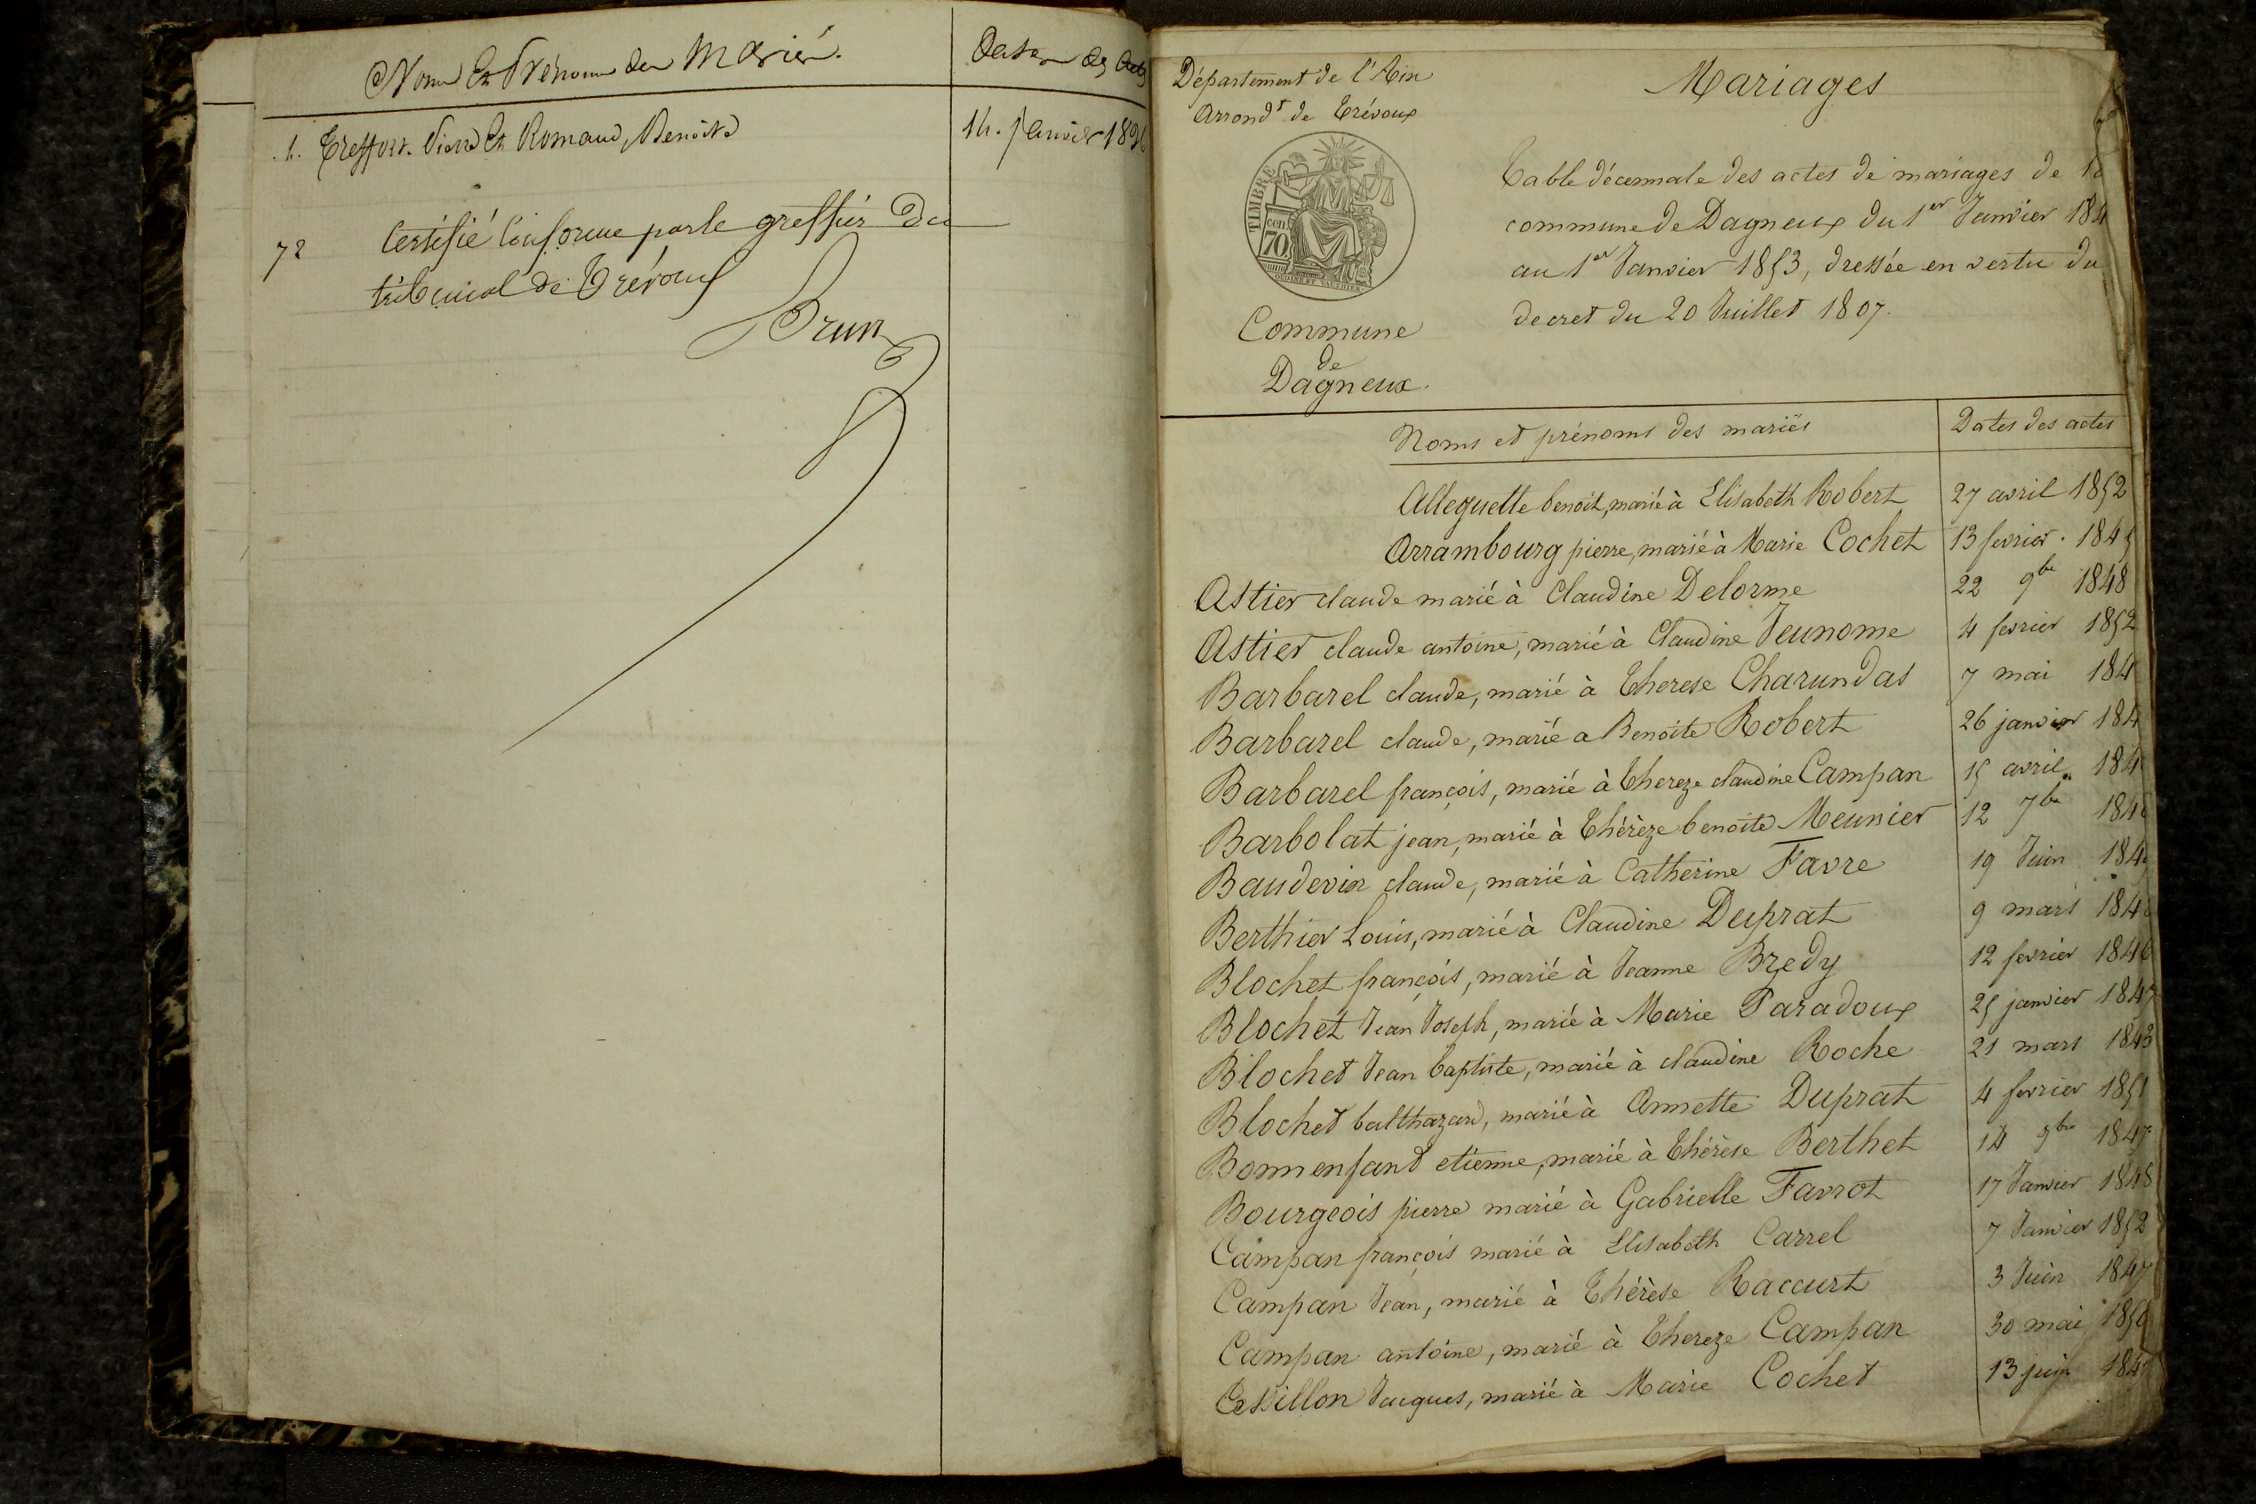 Noms Et Prénoms des Mariés.
Dates des Actes
1. Treffort. Pierre Et Romand, Benoite
14. Janvier 18
72
Certifié Conforme par le greffier du
tribunal de Trévoux
Brun
Département de l'Ain
Arrondt de Trévoux
TIMBRE
cen
70
Commune
de
Dagneux.
Mariages
Table décennale des actes de mariages de la
commune de Dagneux du 1er Janvier 184
au 1er Janvier 1853, dressée en vertu du
decret du 20 Juillet 1807.
Noms et prénoms des mariés
Dates des actes
Alleguette benoit, marié à Elisabeth Robert 27 avril 1852
Arrambourg pierre, marié à Marie Cochet 13 fevrier. 1845
Astier claude marié à Claudine Delorme 22 9bre 1848
Astier claude antoine, marié à Claudine Jeunome 4 fevrier 1852
Barbarel claude, marié à Therese Charundas 7 mai 184
Barbarel claude, marié a Benoite Robert 26 janvier 184
Barbarel françois, marié à Thereze claudine Campan 15 avril 184
Barbolat jean, marié à Thérèze benoite Meunier 12 7bre 184
Baudevin claude, marié à Catherine Favre 19 Juin 184
Berthier Louis, marié à Claudine Duprat 9 mars 184
Blochet françois, marié à Jeanne Bredy 12 fevrier 1846
Blochet Jean Joseph, marié à Marie Paradoux 25 janvier 1847
Blochet Jean baptiste, marié à claudine Roche 21 mars 1843
Blochet balthazard, marié à Annette Duprat 4 fevrier 1851
Bonnenfant etienne, marié à Thérèse Berthet 14 9bre 1847
Bourgeois pierre marié à Gabrielle Favrot 17 Janvier 1848
Campan françois marié à Elisabeth Carrel 7 Janvier 1852
Campan Jean, marié à Thérèse Raccurt 3 Juin 1847
Campan antoine, marié à Thereze Campan 30 mai 1850
Cesillon Jacques, marié à Marie Cochet 13 juin 184